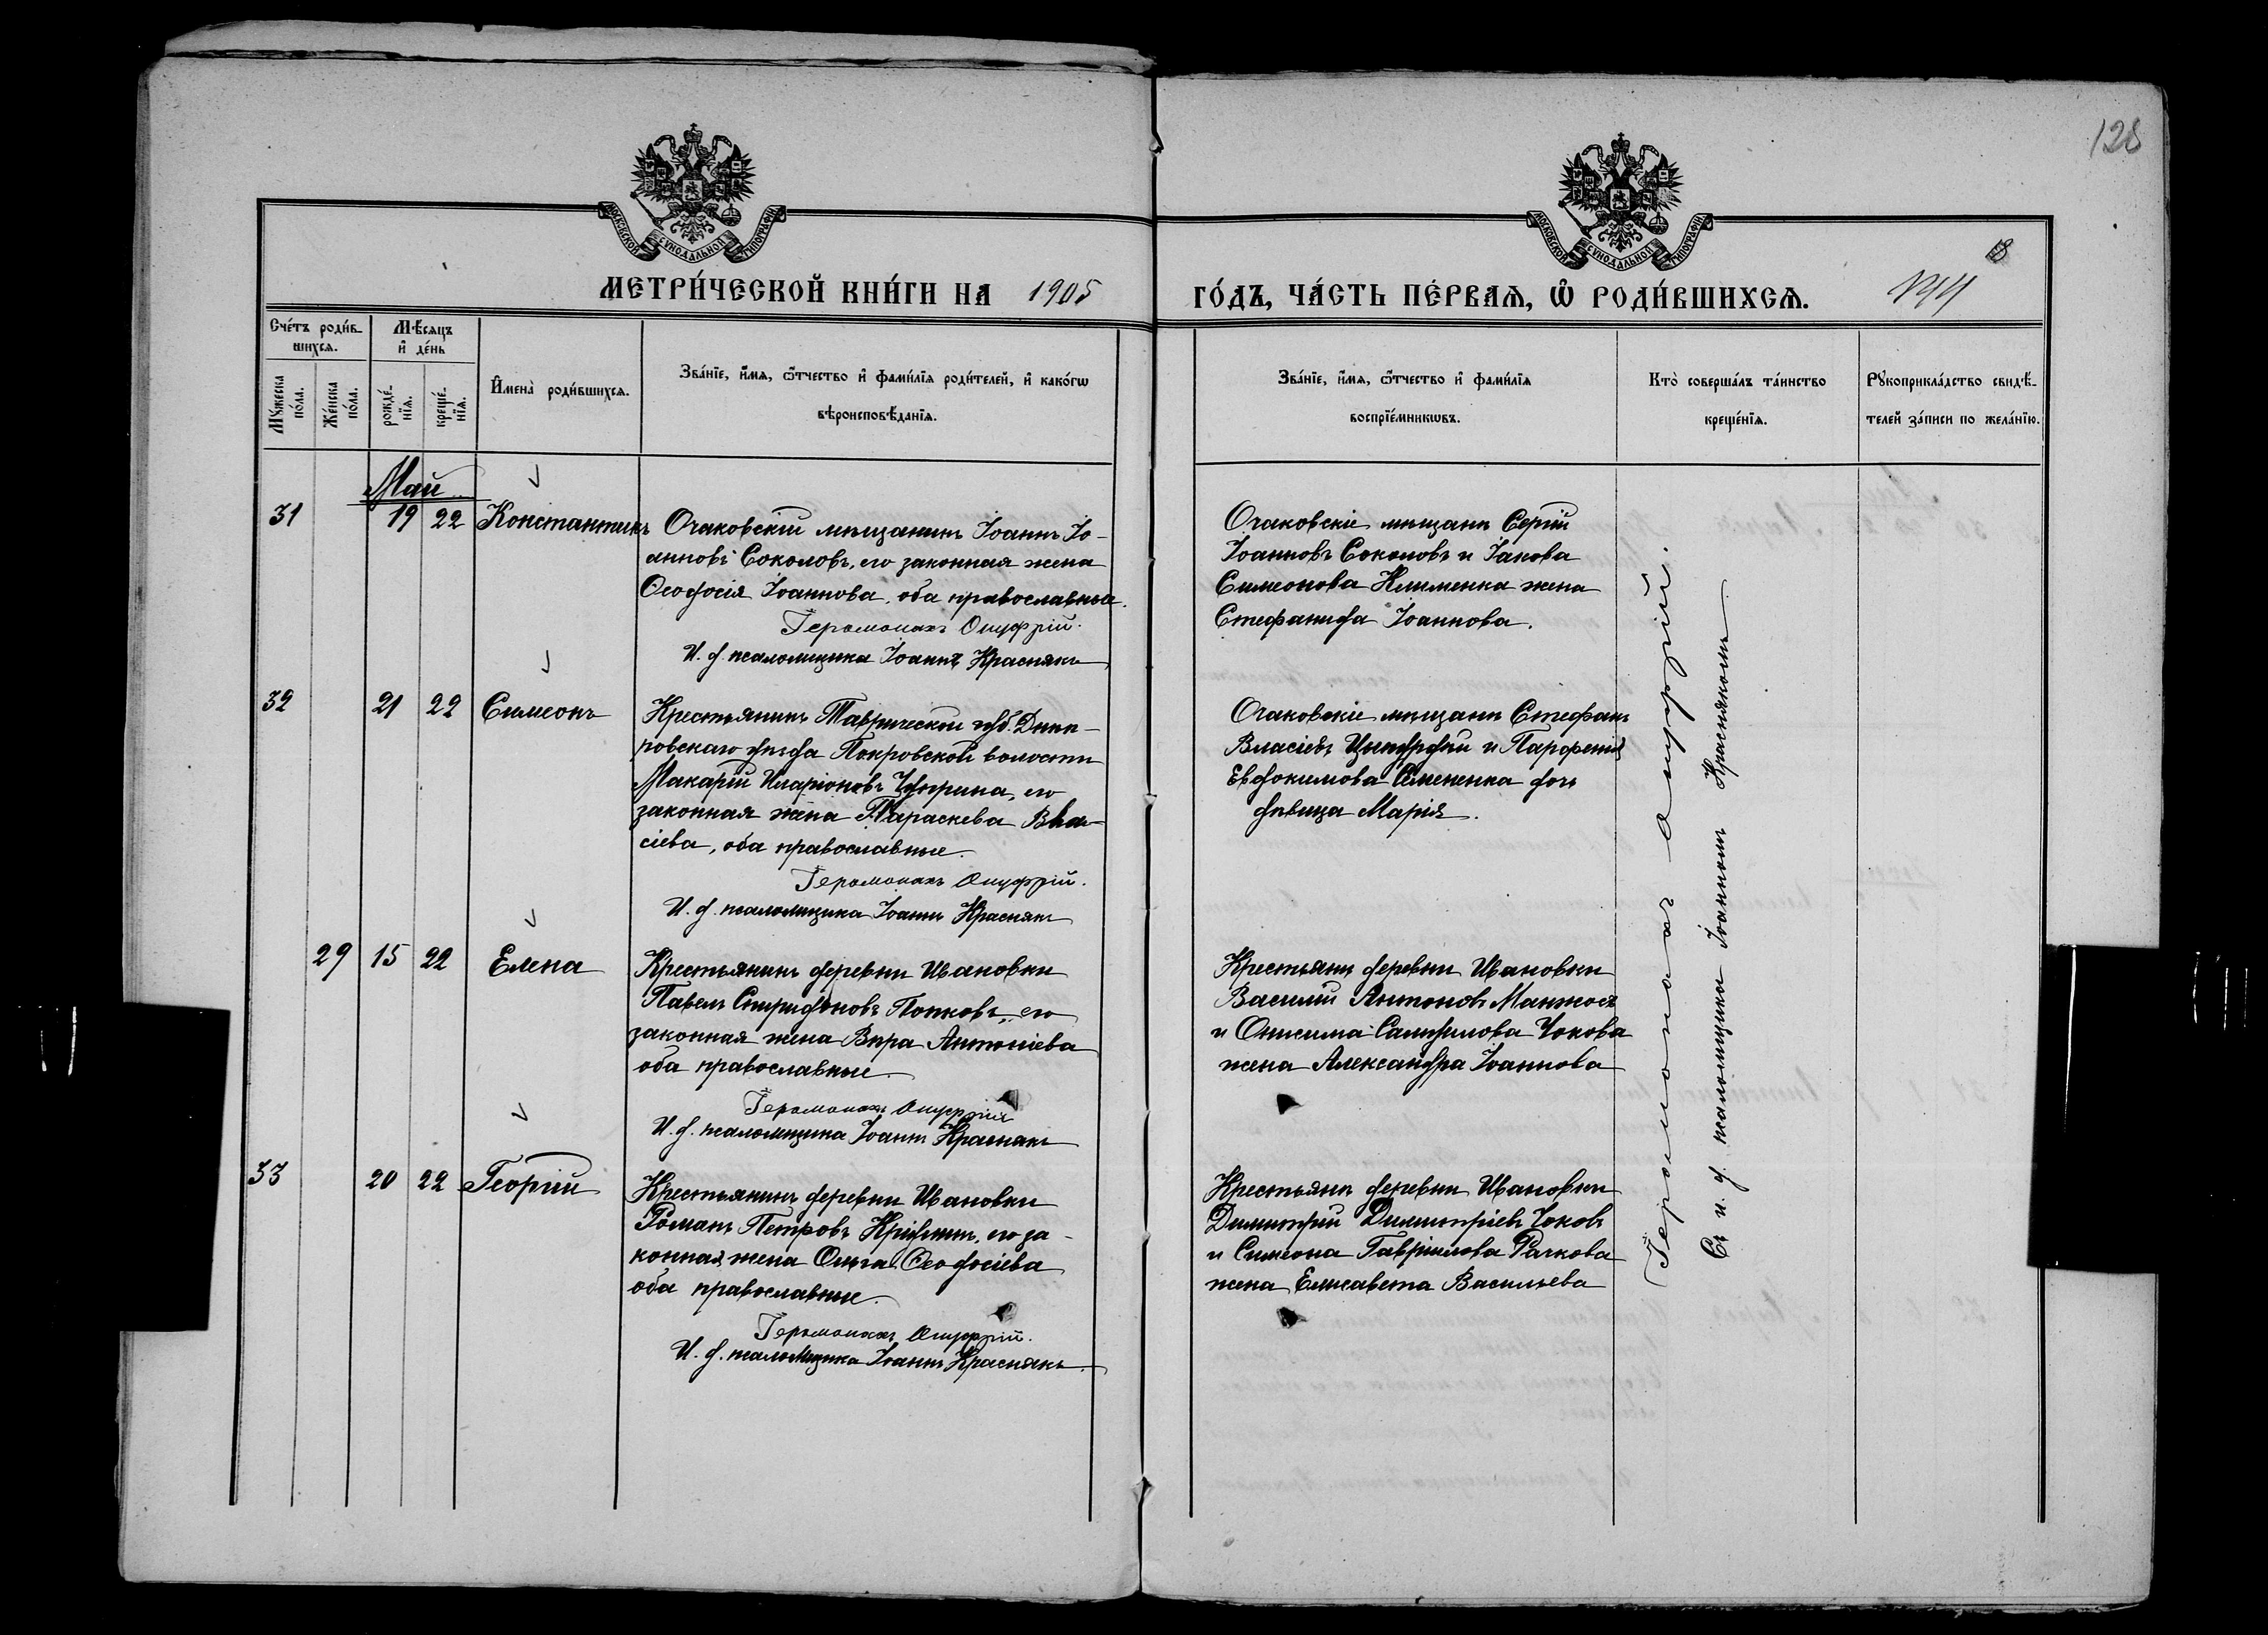 128
МОСКОВСКОЙ СУНОДАЛЬНОЙ ТИПОГРАФІИ
МОСКОВСКОЙ СУНОДАЛЬНОЙ ТИПОГРАФІИ
МЕТРИ́ЧЕСКОЙ КНИ́ГИ НА 1905
ГО́ДЪ, ЧА́СТЬ ПЕ́РВАѦ, Ѡ҆ РОДИ́ВШИХСѦ.
Сче́тъ роди́в-
шихсѧ.
Мꙋ́жеска
по́ла.
Же́нска
по́ла.
Мѣ́сѧцъ
и҆ де́нь
рожде́-
нїѧ.
креще́-
нїѧ.
И҆мена̀ роди́вшихсѧ.
Зва́нїе, и҆́мѧ, ѻ҆́тчество и҆ фами́лїѧ роди́телей, и҆ како́гѡ
вѣроисповѣ́данїѧ.
Зва́нїе, и҆́мѧ, ѻ҆́тчество и҆ фами́лїѧ
воспрїе́мникѡвъ.
Кто̀ соверша́лъ та́инство
креще́нїѧ.
Рꙋкоприкла́дство свидѣ́-
телей за́писи по жела́нїю.
Май
31 19 22 Константинъ
Очаковскій мѣщанинъ Іоаннъ Іо-
анновъ Соколовъ, его законная жена
Ѳеодосія Іоаннова, оба православные.
Іеромонахъ Онуфрій.
И. д. псаломщика Іоаннъ Краснякъ
Очаковскіе мѣщане Сергій
Іоанновъ Соколовъ и Іакова
Симеонова Клименка жена
Стефанида Іоаннова.
32 21 22 Симеонъ
Крестьянинъ Таврической губ. Днѣп-
ровскаго уѣзда Покровской волости
Макарій Иларіоновъ его
законная жена Параскева Вла-
сіева, оба православные.
Іеромонахъ Онуфрій.
И. д. псаломщика Іоаннъ Краснякъ
Очаковскіе мѣщане Стефанъ
Власіевъ и Парфенія
Евдокимова Семененка дочь
дѣвица Марія.
29 15 22 Елена
Крестьянинъ деревни Ивановки
Павелъ Спиридоновъ Попковъ, его
законная жена Вѣра Антоніева
оба православные.
Іеромонахъ Онуфрій
И. д. псаломщика Іоаннъ Краснякъ
Крестьяне деревни Ивановки
Василій Антоновъ Манжосъ
и Онисима Самуилова Чокова
жена Александра Іоаннова
33 20 22 Георгій
Крестьянинъ деревни Ивановки
Романъ Петровъ его за-
конная жена Ольга Ѳеодосіева
оба православные.
Іеромонахъ Онуфрій.
И. д. псаломщика Іоаннъ Краснякъ.
Крестьяне деревни Ивановки
Димитрій Димитріевъ Чоковъ
и Симеона Гавріилова Рачкова
жена Елисавета Васильева
Іеромонахъ Онуфрій.
Съ и. д. псаломщика Іоанномъ Краснякомъ